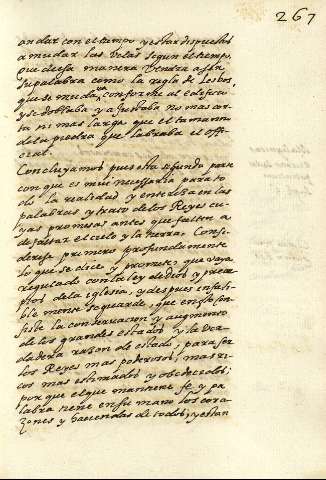 267
andar con el tiempo y estar dispuesto
a mudar las velas segun el tiempo,
que desta manera vendra a ser
su palabra como la regla de Lesbos,
que se mudava conforme al edificio
y se doblaba y ajustaba no mas cor
ta ni mas larga que el tamaño
dela piedra que labraba el offi
cial.
Concluyamos pues esta segunda parte
con que es mui necessaria para to
do la realidad y entereza en las
palabras y trato delos Reyes cu
yas promesas antes que falten a
de faltar el cielo y la tierra. Consi
derese primero profundamente
lo que se dice y promete, que vaya
regulado con la ley de dios y prece
ptos dela iglesia, y despues infali
ble mente se guarde, que en esto con
siste la conservacion y augmento
delos grandes estados y la ver
dadera razon de estado, para ser
los Reyes mas poderosos, mas ri
cos mas estimados y obedecidos;
por que el que mantiene fe y pa
labra tiene en su mano los cora
zones y haciendas de todos, y estan